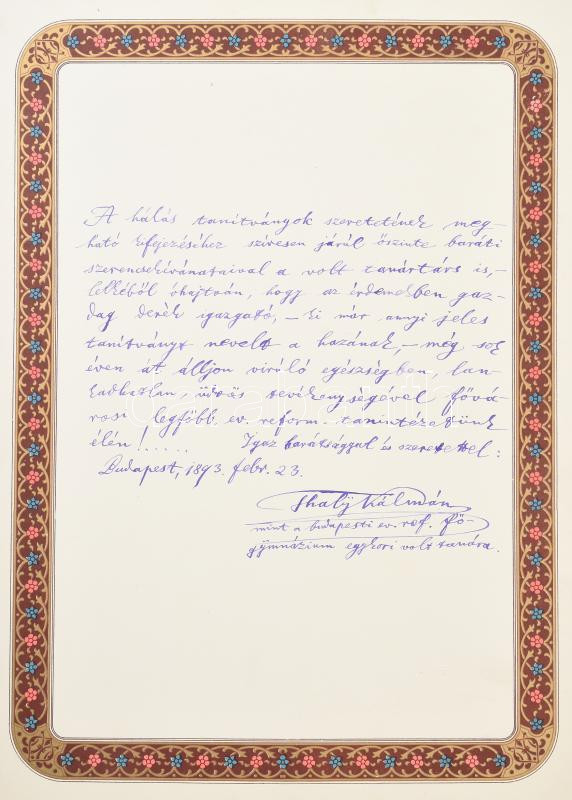 A hálás tanítványok szeretetének meg-
ható kifejezéséhez szivesen járúl őszinte baráti
szerencsekívánataival a volt tanártárs is, –
lelkéből óhajtván, hogy az érdemekben gaz-
dag derék igazgató, – ki már annyi jeles
tanítványt nevelt a hazának, – még sok
éven át álljon viruló egészségben, lan-
kadhatlan, üdvös tevékenységével fővá-
rosi legfőbb ev. reform. tanintézetünk
élén! ...... Igaz barátsággal és szeretettel:
Budapest, 1893. febr. 23.
Thaly Kálmán
mint a budapesti ev. ref. fő-
gymnázium egykori volt tanára.